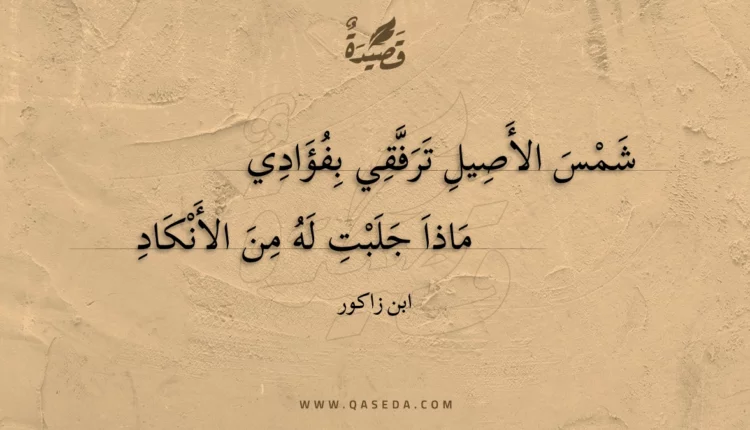 قَصِيدَةٌ
شَمْسَ الأَصِيلِ تَرَفَّقِي بِفُؤَادِي
مَاذاَ جَلَبْتِ لَهُ مِنَ الأَنْكَادِ
ابن زاكور
WWW.QASEDA.COM